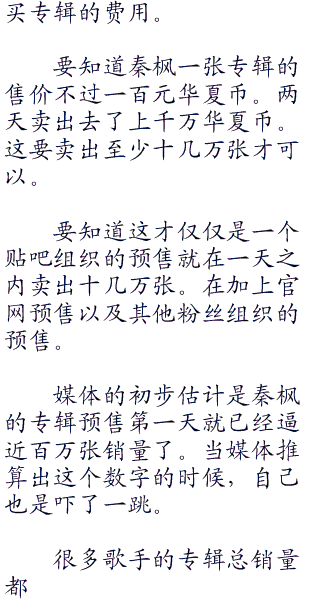 买专辑的费用。
要知道秦枫一张专辑的
售价不过一百元华夏币。两
天卖出去了上千万华夏币。
这要卖出至少十几万张才可
以。
要知道这才仅仅是一个
贴吧组织的预售就在一天之
内卖出十几万张。在加上官
网预售以及其他粉丝组织的
预售。
媒体的初步估计是秦枫
的专辑预售第一天就已经逼
近百万张销量了。当媒体推
算出这个数字的时候，自己
也是吓了一跳。
很多歌手的专辑总销量
都